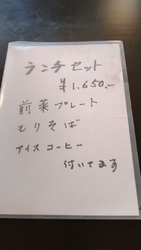 ランチセット
¥1.650.-
前菜プレート
もりそば
アイスコーヒー
付いてます